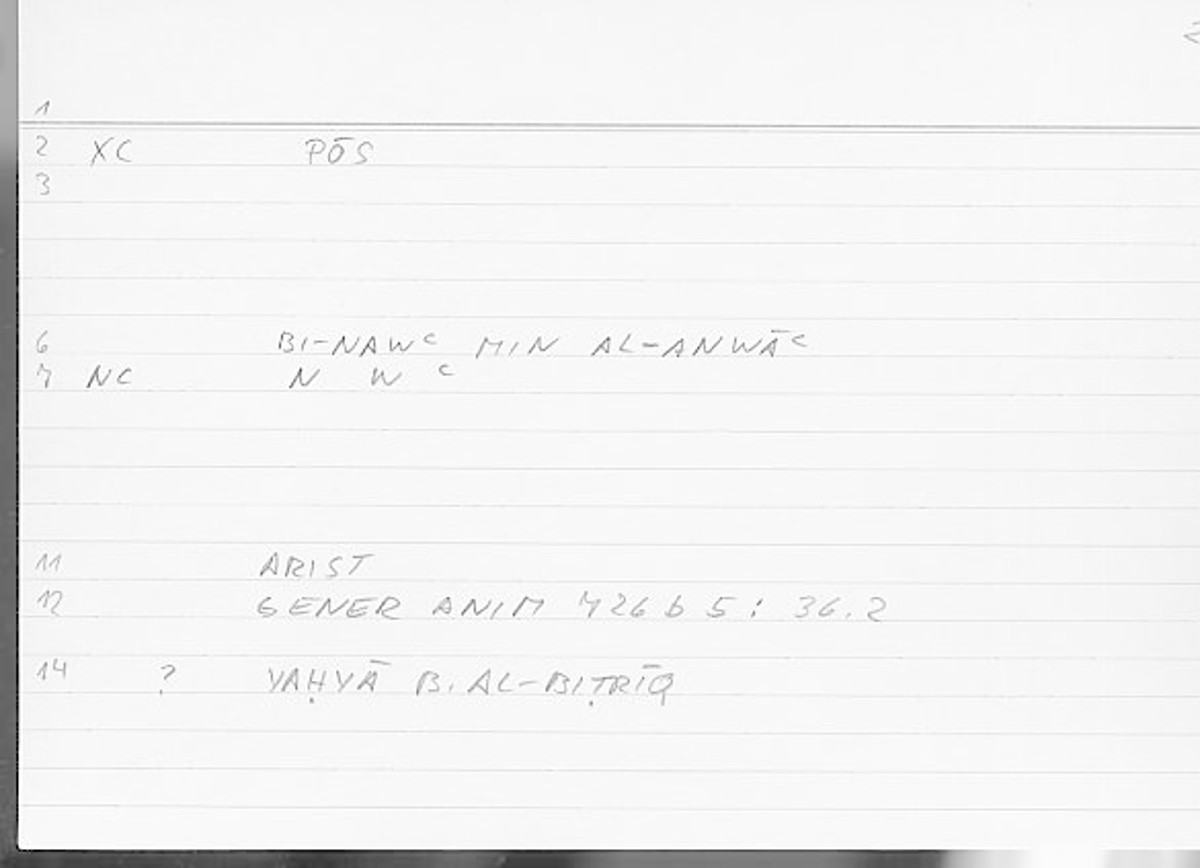 1
2 XC PŌS
3
6 BI-NAWᶜ MIN AL-ANWĀᶜ
7 NC N W ᶜ
11 ARIST
12 GENER ANIM 726 b 5 : 36.2
14 ? YAḤYĀ B. AL-BIṬRĪQ